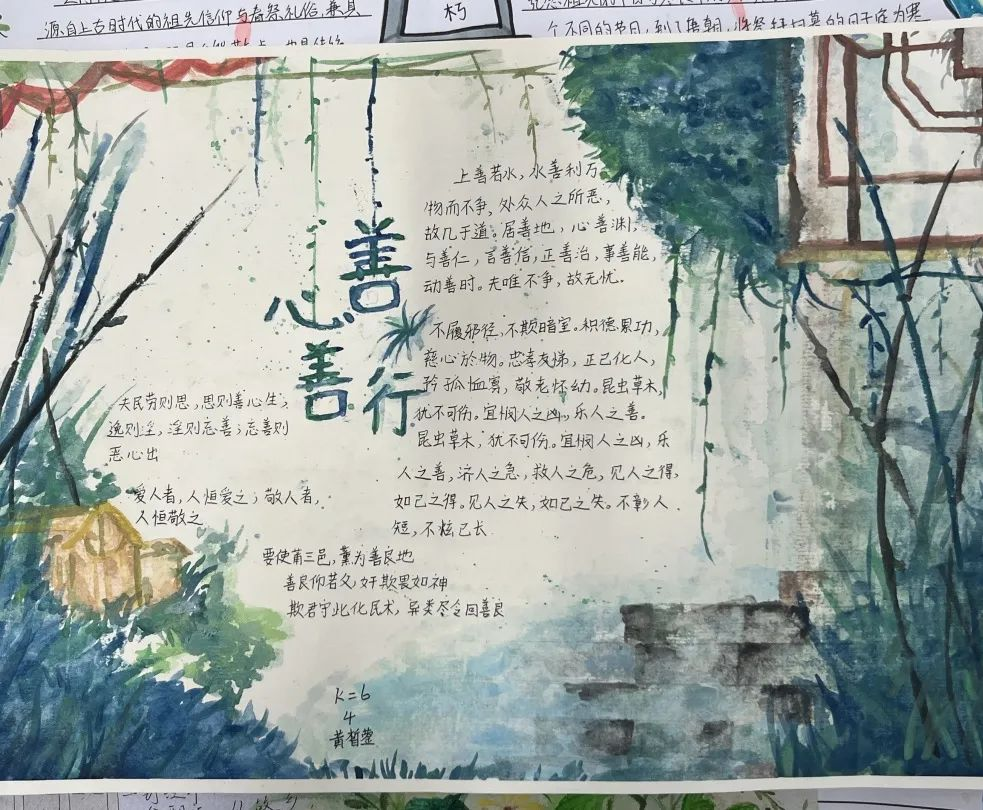 源自上古时代的祖先信仰与春祭礼俗,兼具
朽
个不同的节日,到了唐朝,将祭拜扫墓的日子定为寒
善
心
善
行
上善若水,水善利万
物而不争,处众人之所恶,
故几于道。居善地,心善渊,
与善仁,言善信,正善治,事善能,
动善时。夫唯不争,故无忧.
不履邪径,不欺暗室。积德累功,
慈心於物。忠孝友悌,正己化人,
矜孤恤寡,敬老怀幼。昆虫草木,
犹不可伤。宜悯人之凶,乐人之善。
昆虫草木,犹不可伤。宜悯人之凶,乐
人之善,济人之急,救人之危,见人之得,
如己之得。见人之失,如己之失。不彰人
短,不炫己长.
夫民劳则思,思则善心生;
逸则淫,淫则忘善;忘善则
恶心出
爱人者,人恒爱之;敬人者,
人恒敬之
要使莆三邑,薰为善良地
善良仰若父,奸欺畏如神
欺君宇此化民术,异类尽令回善良
K=6
4
黄皙蓥